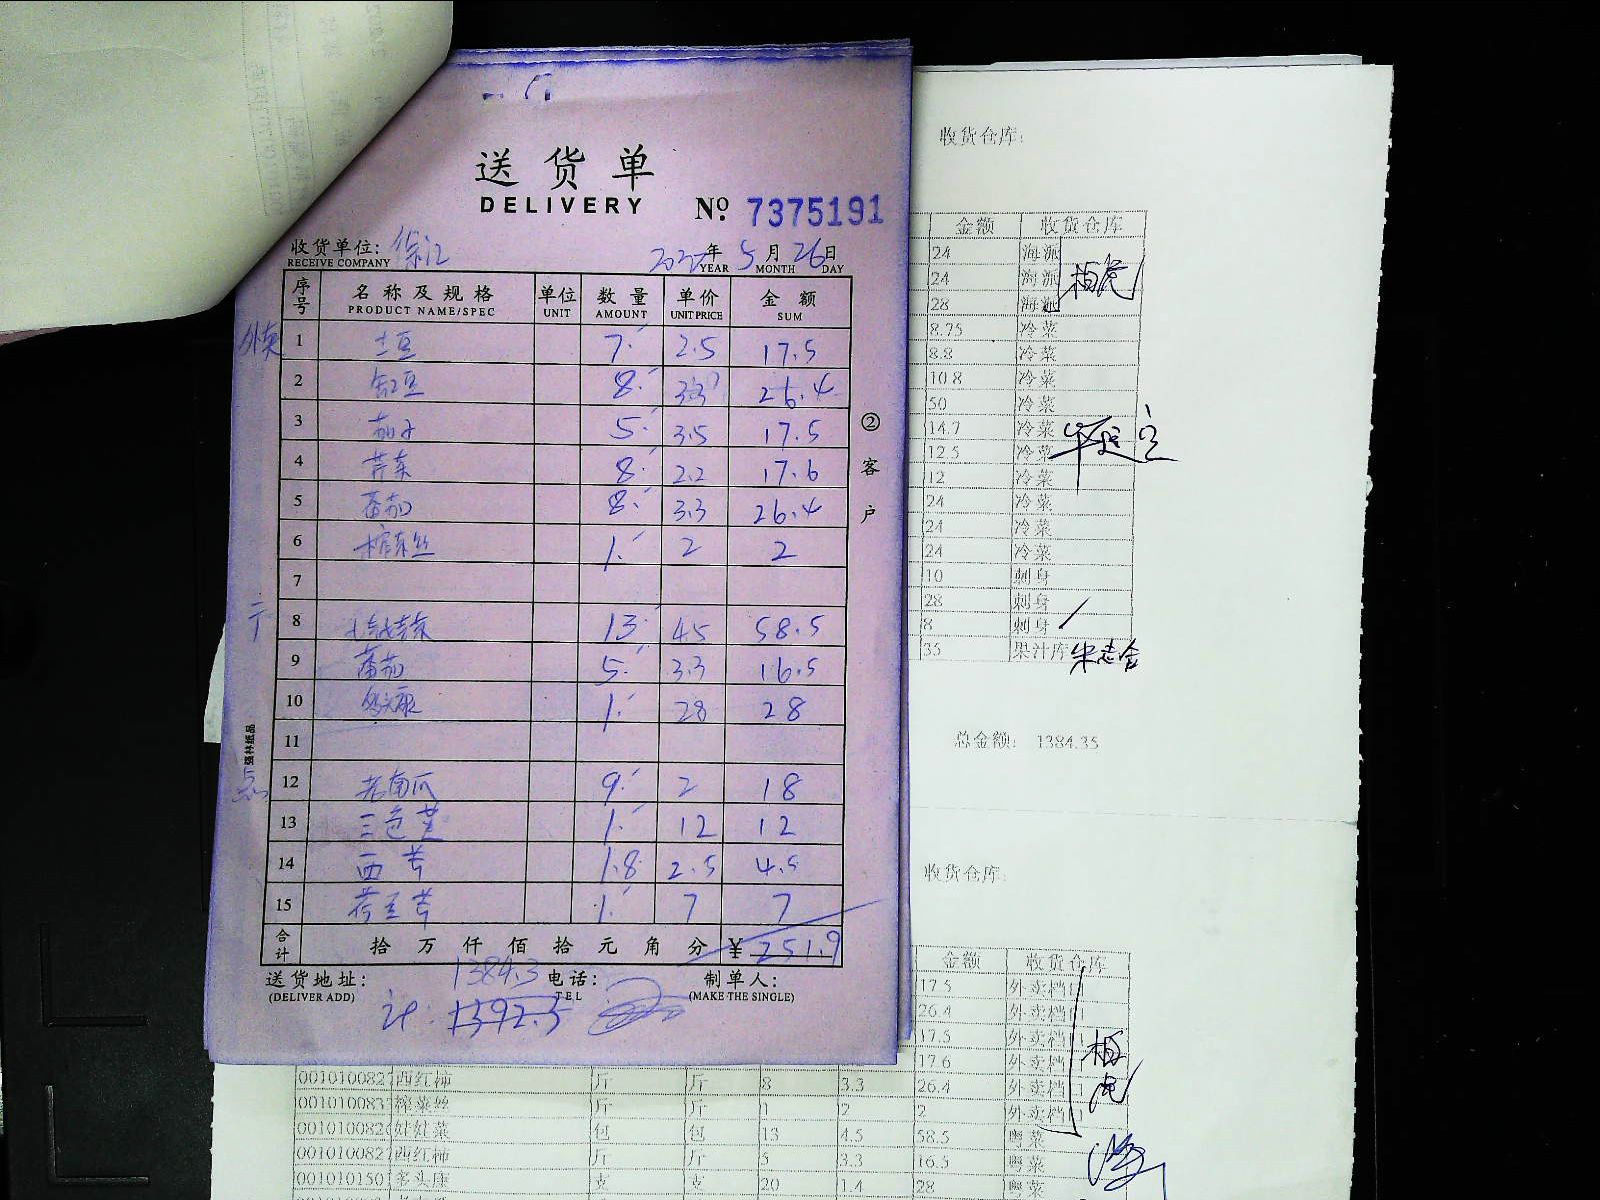 送货单
DELIVERY No 7375191
收货单位: 徐汇
RECEIVE COMPANY
年 5 月 26 日
YEAR MONTH DAY
序号 名称及规格 单位 数量 单价 金额
PRODUCT NAME/SPEC UNIT AMOUNT UNIT PRICE SUM
外卖 1 土豆 7. 2.5 17.5
2 缸豆 8. 3.3 26.4
3 茄子 5. 3.5 17.5
4 芹菜 8. 2.2 17.6
5 番茄 8. 3.3 26.4
6 榨菜丝 1. 2 2
7
8 13. 4.5 58.5
9 番茄 5. 3.3 16.5
10 1. 28 28
11
12 老南瓜 9. 2 18
13 三色堇 1. 12 12
14 西芹 1.8 2.5 4.5
15 1. 7 7
合计 拾 万 仟 佰 拾 元 角 分 ¥ 251.9
送货地址: 1384.3 电话: 制单人:
(DELIVER ADD) TEL (MAKE THE SINGLE)
计: 1392.5
②客户
强林纸品
收货仓库:
金额 收货仓库
24 海派
24 海派
28 海派
8.75 冷菜
8.8 冷菜
10.8 冷菜
50 冷菜
14.7 冷菜
12.5 冷菜
12 冷菜
24 冷菜
24 冷菜
24 冷菜
10 刺身
28 刺身
8 刺身
35 果汁库 朱志会
总金额: 1384.35
收货仓库:
金额 收货仓库
17.5 外卖档口
26.4 外卖档口
17.5 外卖档口
17.6 外卖档口
001010082 西红柿 斤 斤 8 3.3 26.4 外卖档口
001010083 榨菜丝 斤 斤 1 2 2 外卖档口
001010082 娃娃菜 包 包 13 4.5 58.5 粤菜
001010082 西红柿 斤 斤 5 3.3 16.5 粤菜
001010150 多头康 支 支 20 1.4 28 粤菜